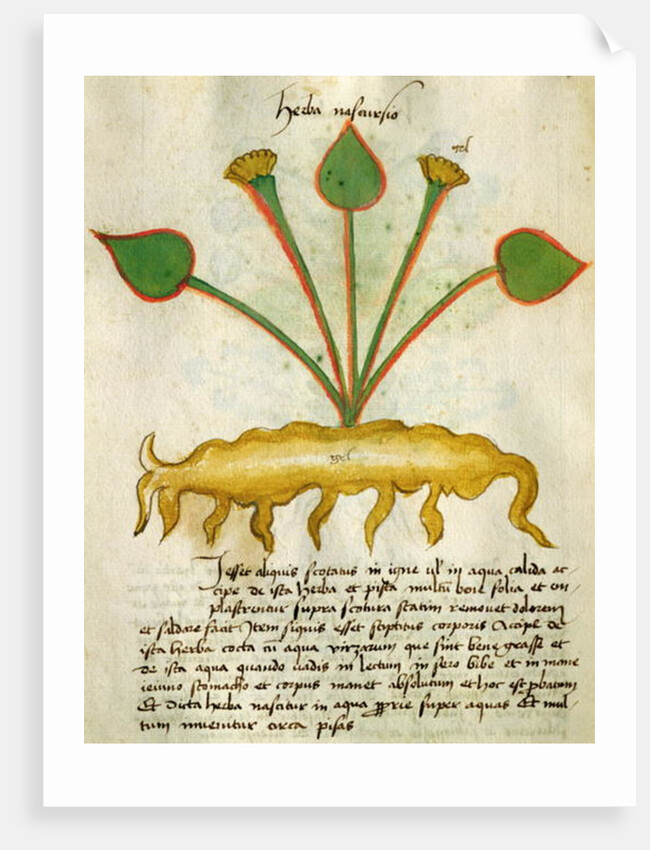 Herba nascursio
gel
gel
Jesset aliquis scotatus in igne ul' in aqua calida ac-
cipe de ista herba et pista multu boie folia et en
plastrentur supra scotura statim removet dolorem
et saldare facit Item siquis esset stiptitus corporis Accipe de
ista herba cocta cu aqua virzarum que sint bene grasse et
de ista aqua quando vadis in lectum in sero bibe et in mane
ieiuno stomacho et corpus manet absolutum et hoc est pbatum
Et dicta herba nascitur in aqua pprie super aquas Et mul-
tum invenitur circa pisas